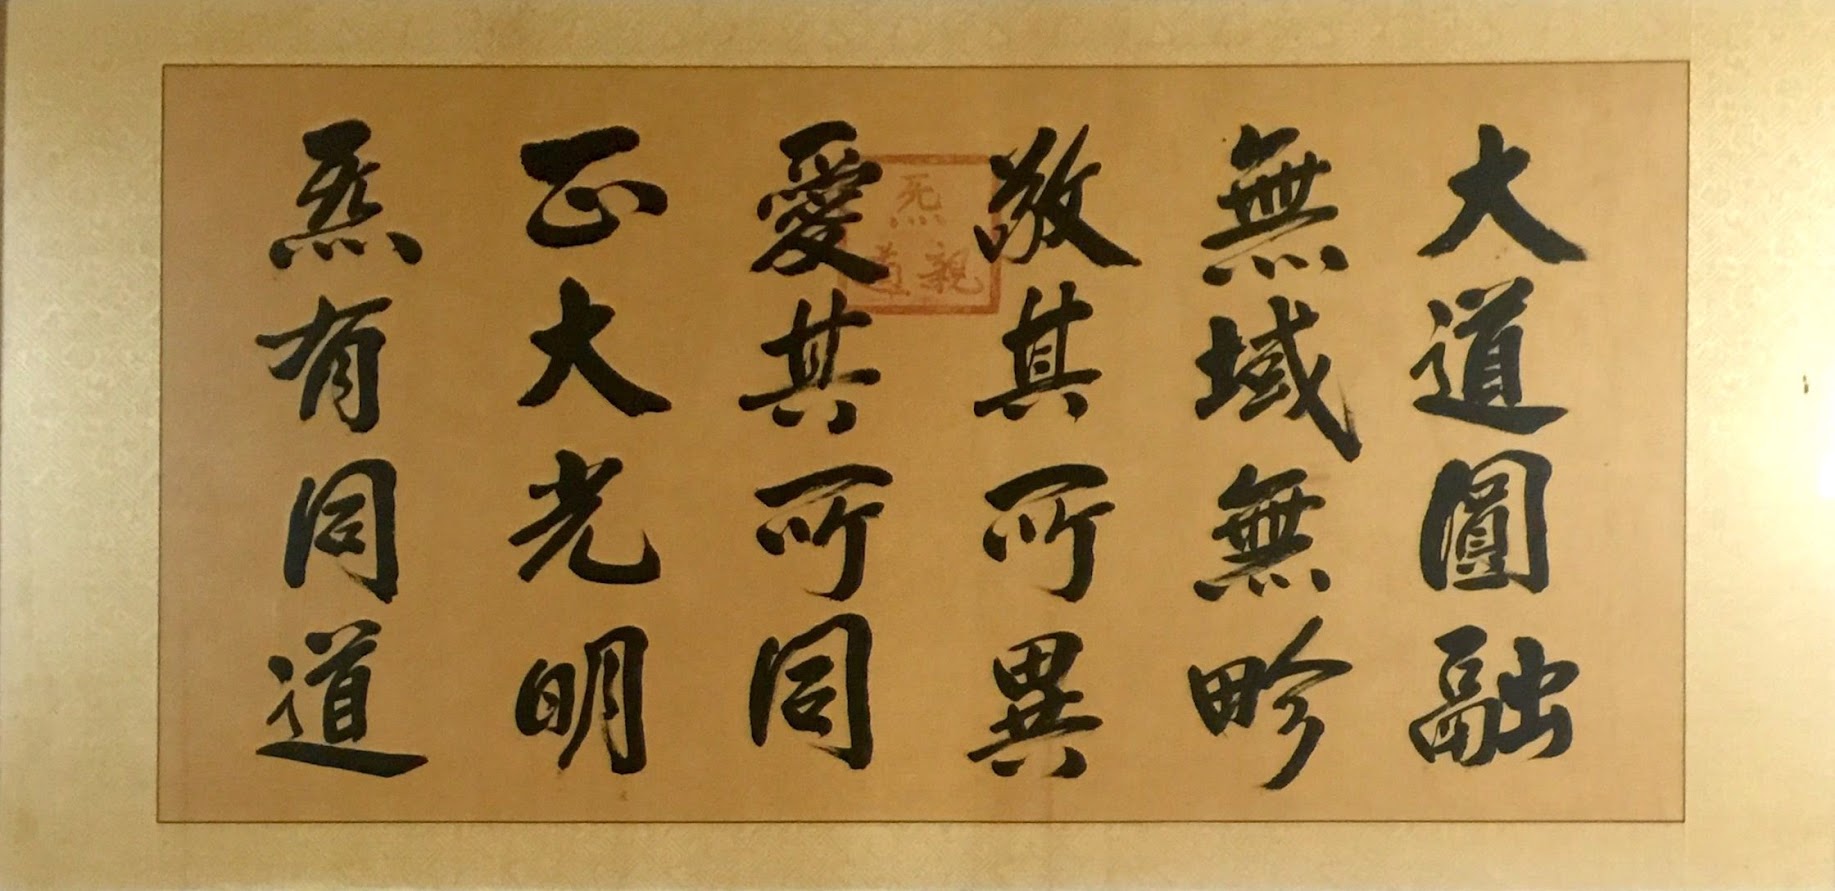 大道圓融
無域無畛
敬其所異
愛其所同
正大光明
炁有同道
炁親道